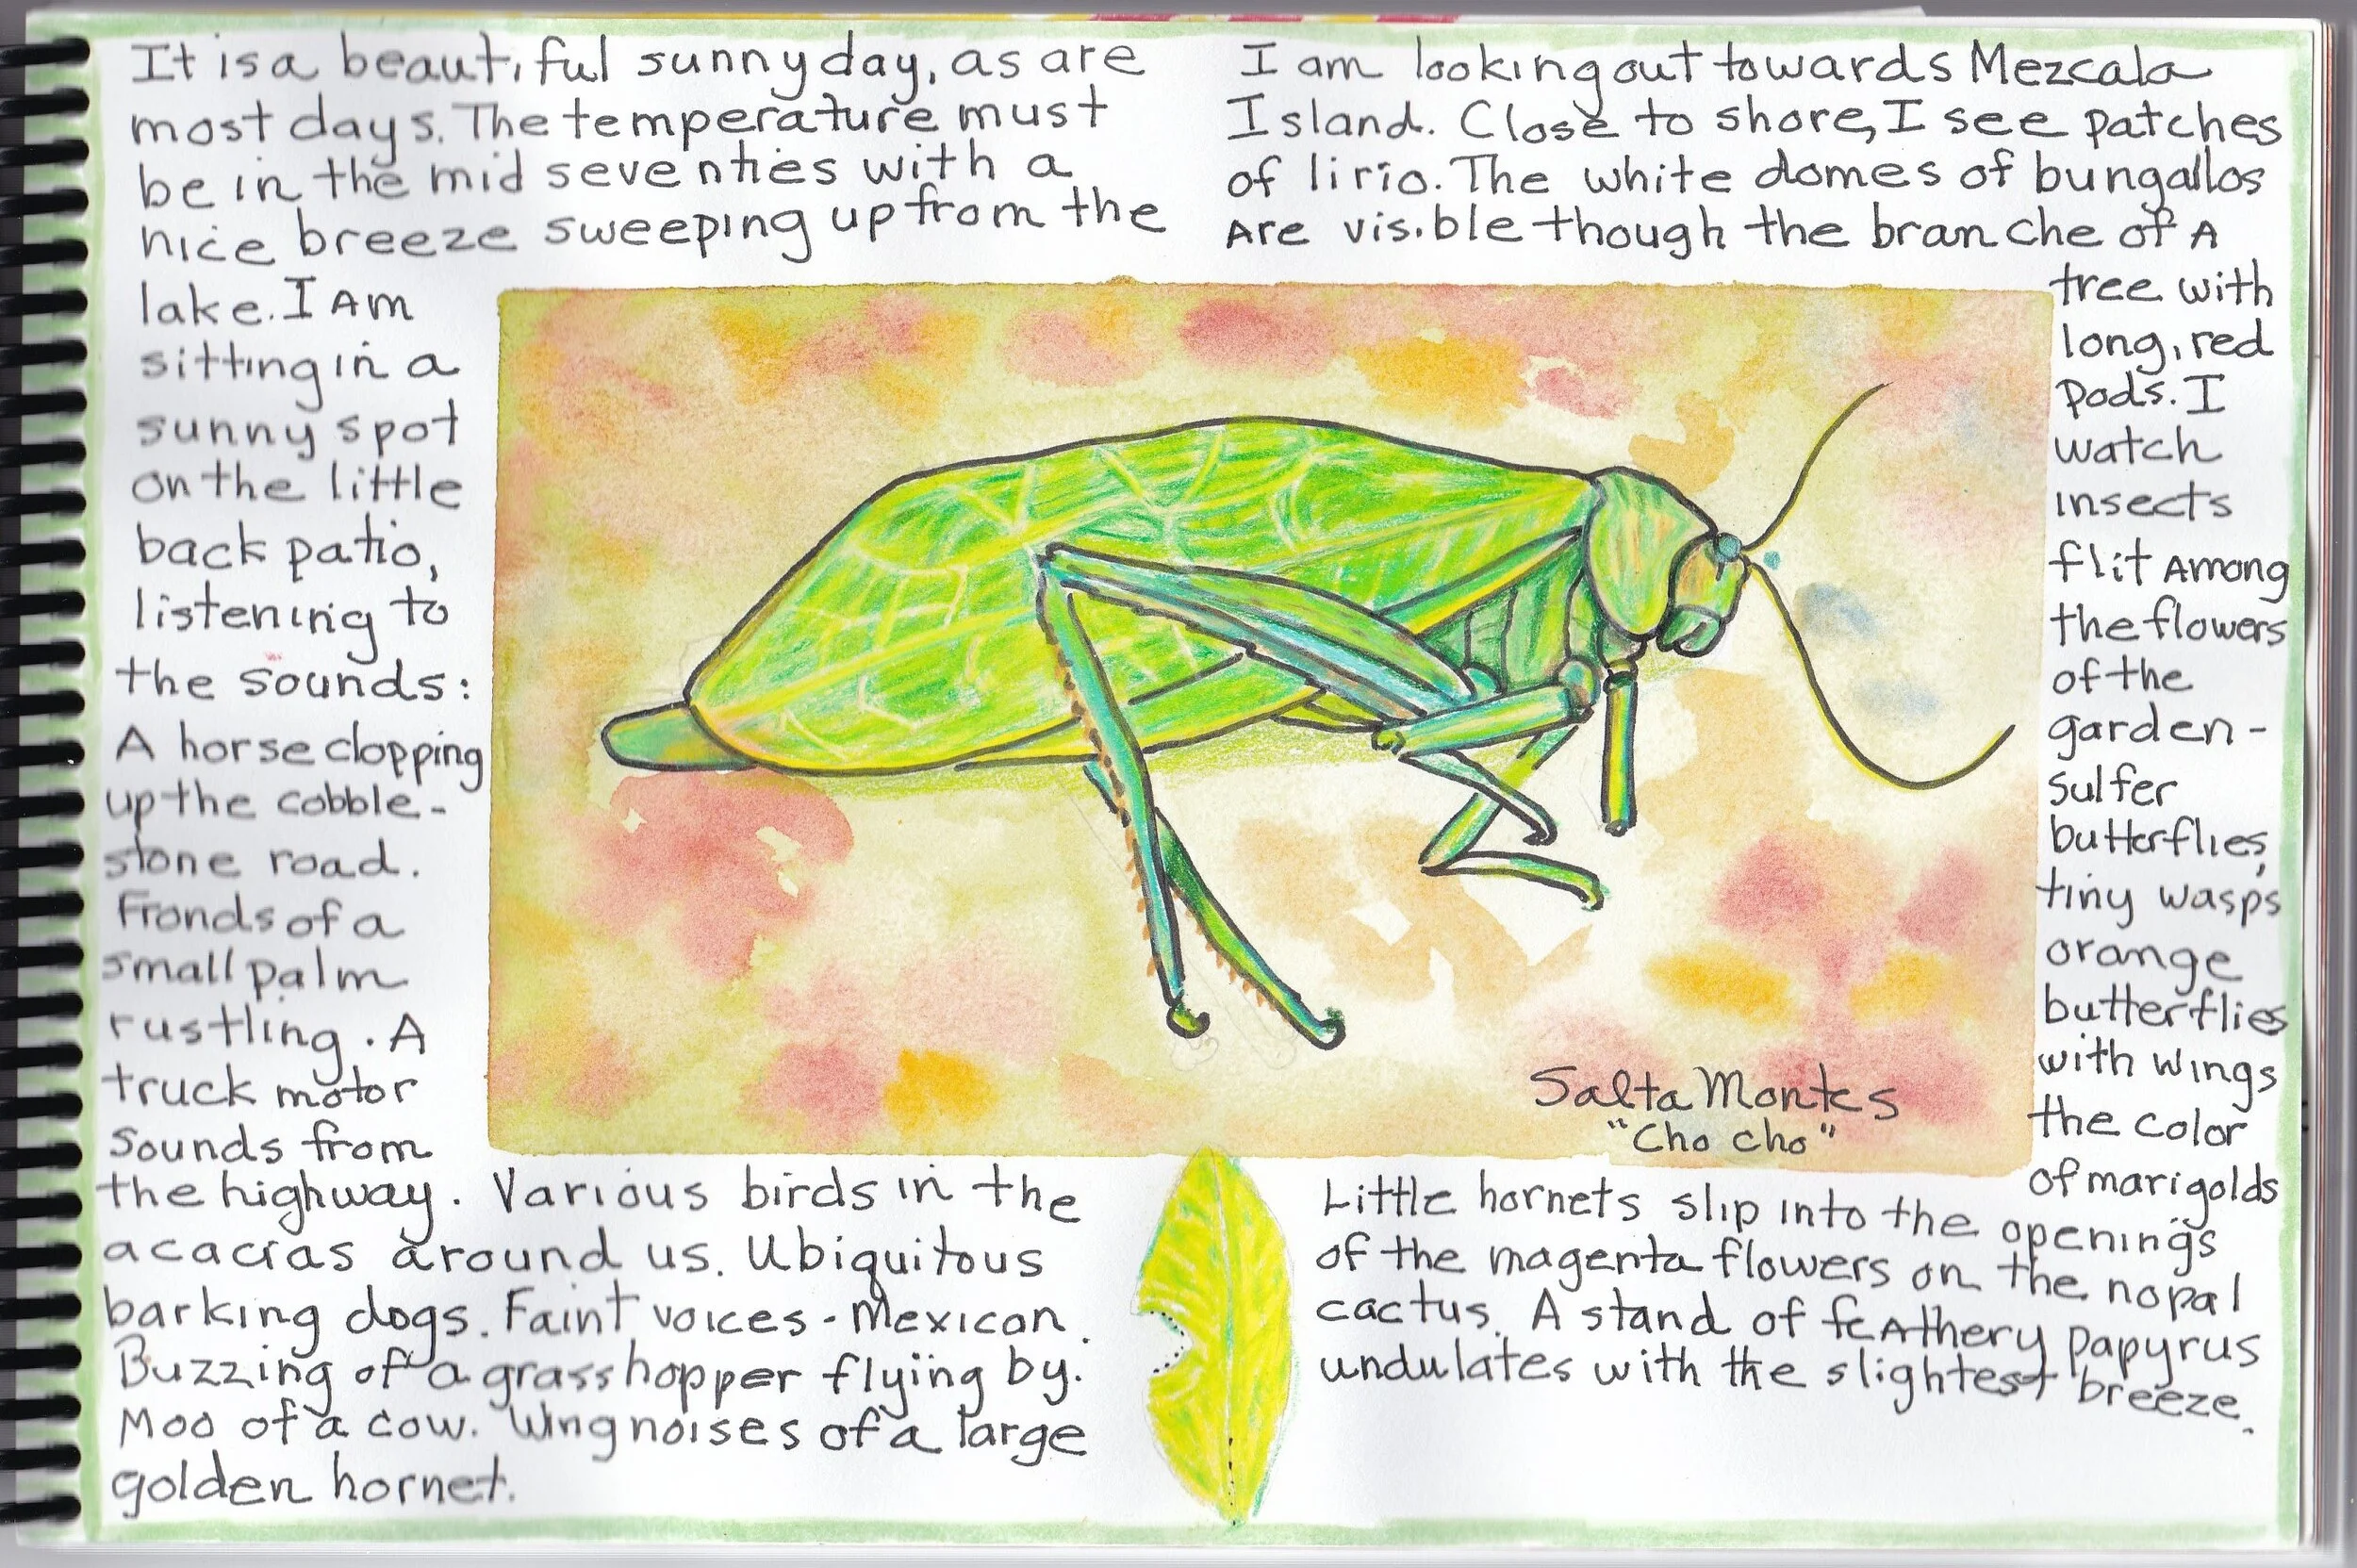 It is a beautiful sunny day, as are
most days. The temperature must
be in the mid seventies with a
nice breeze sweeping up from the
lake. I Am
sitting in a
sunny spot
on the little
back patio,
listening to
the sounds:
A horse clopping
up the cobble-
stone road.
Fronds of a
small palm
rustling. A
truck motor
sounds from
the highway. Various birds in the
acacias around us. Ubiquitous
barking dogs. Faint voices - Mexican.
Buzzing of a grasshopper flying by.
Moo of a cow. Wing noises of a large
golden hornet.
I am looking out towards Mezcala
Island. Close to shore, I see patches
of lirio. The white domes of bungallos
Are visible though the branche of A
tree with
long, red
pods. I
watch
insects
flit Among
the flowers
of the
garden -
sulfer
butterflies,
tiny wasps
orange
butterflies
with wings
the color
of marigolds
Little hornets slip into the openings
of the magenta flowers on the nopal
cactus. A stand of feAthery papyrus
undulates with the slightest breeze.
Salta Montes
"Cho cho"